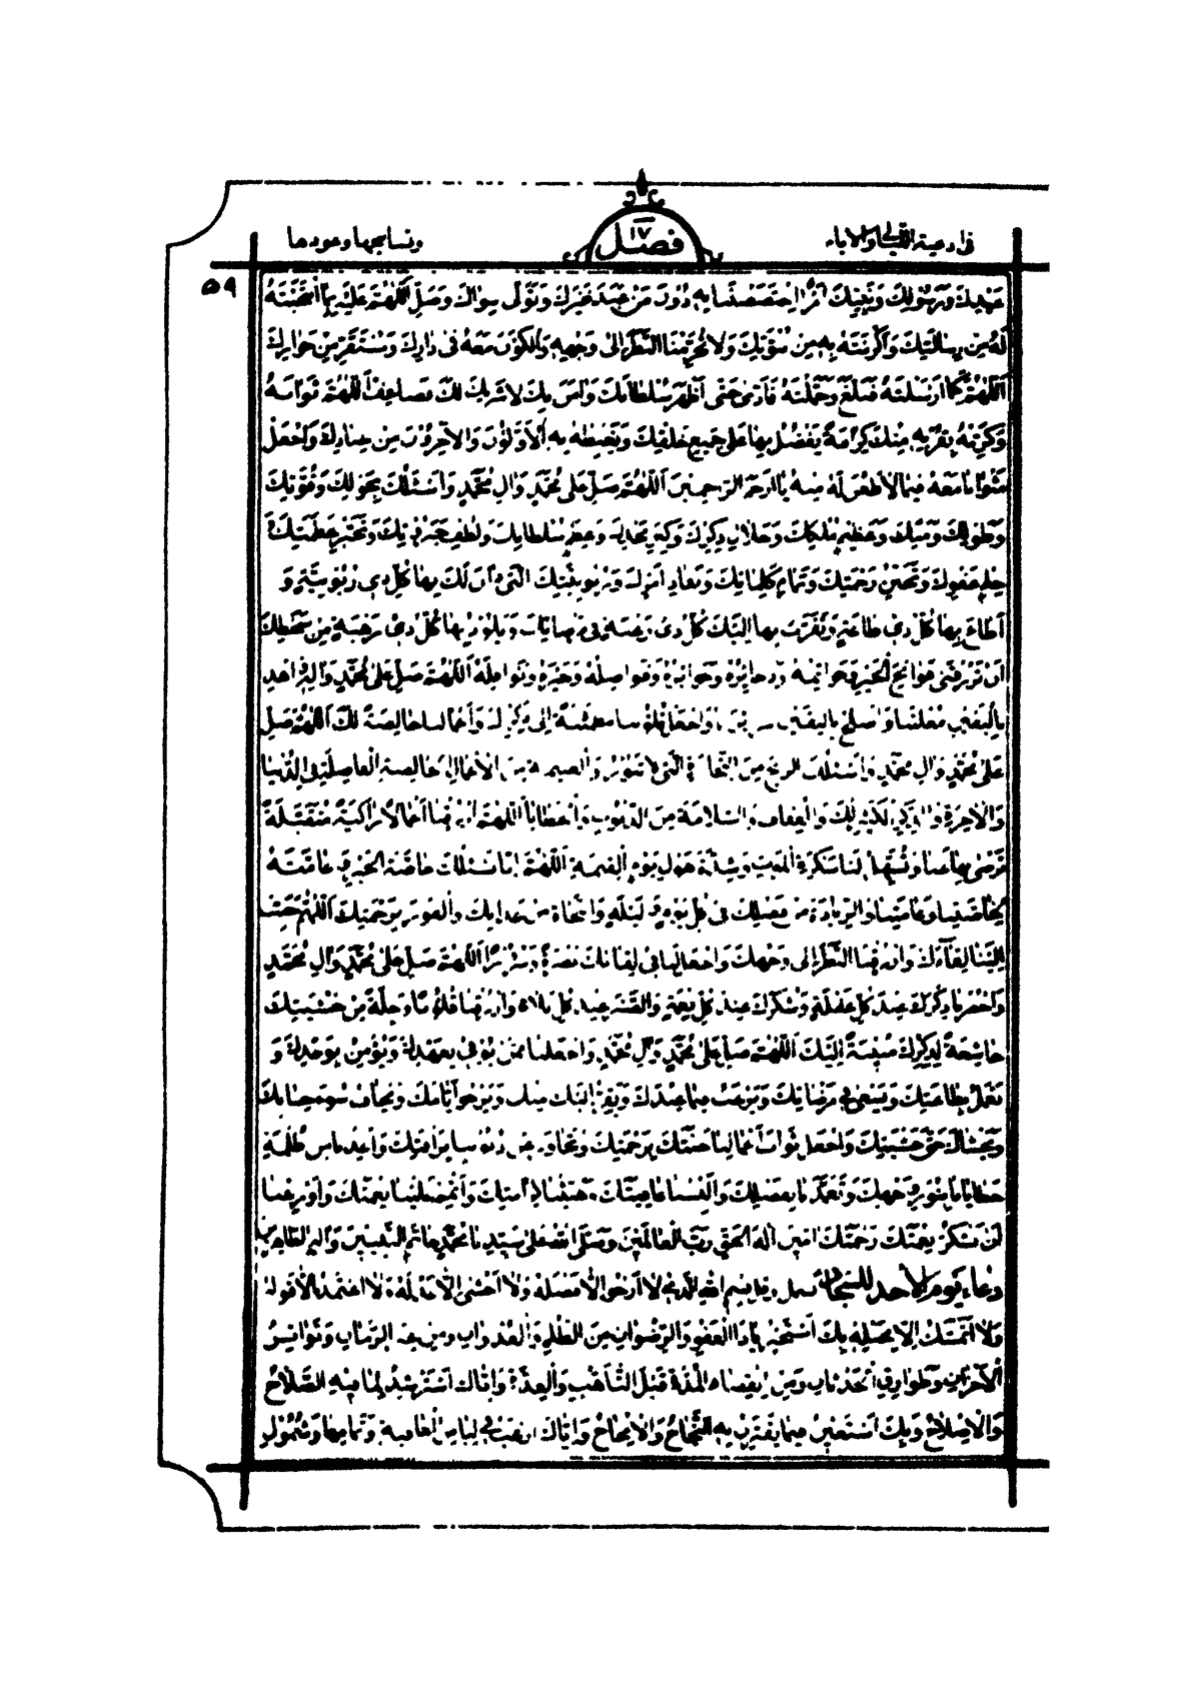 في ادعية الليالي والايام
فصل ١٧
وتسابيحها وعودها
٥٩
عَبْدِكَ وَرَسُولِكَ وَنَبِيِّكَ دُونَ مَنْ عَبَدَ غَيْرَكَ وَتَوَلّٰى سِوٰاكَ وَصَلِّ اَللّٰهُمَّ عَلَيْهِ بِمَا انْتَجَبْتَهُ
لَهُ مِنْ رِسٰالَتِكَ وَاَكْرَمْتَهُ بِهِ مِنْ نُبُوَّتِكَ وَلٰا تَحْرِمْنَا النَّظَرَ اِلٰى وَجْهِهِ وَالْكَوْنَ مَعَهُ فى دٰارِكَ وَمُسْتَقَرٍّ مِنْ جِوٰارِكَ
اَللّٰهُمَّ كَمٰا اَرْسَلْتَهُ فَبَلَّغَ وَحَمَّلْتَهُ فَاَدّٰى حَتّٰى اَظْهَرَ سُلْطٰانَكَ وَاٰمَنَ بِكَ لٰا شَرِيكَ لَكَ فَضٰاعِفْ اَللّٰهُمَّ ثَوٰابَهُ
وَكَرِّمْهُ بِقُرْبِهِ مِنْكَ كَرٰامَةً يَفْضُلُ بِهٰا عَلٰى جَمِيعِ خَلْقِكَ وَيَغْبِطُهُ بِهِ الْاَوَّلُونَ وَالْاٰخِرُونَ مِنْ عِبٰادِكَ وَاجْعَلْ
مَثْوٰانٰا مَعَهُ فيمٰا لٰا ظَعْنَ لَهُ مِنْهُ يٰا اَرْحَمَ الرّٰحِمينَ اَللّٰهُمَّ صَلِّ عَلٰى مُحَمَّدٍ وَاٰلِ مُحَمَّدٍ وَاَسْئَلُكَ بِحَوْلِكَ وَقُوَّتِكَ
وَطَوْلِكَ وَمَنِّكَ وَعَظِيمِ مُلْكِكَ وَجَلٰالِ ذِكْرِكَ وَكِبَرِ مَجْدِكَ وَعِظَمِ سُلْطٰانِكَ وَلُطْفِ جَبَرُوتِكَ وَتَجَبُّرِ عَظَمَتِكَ وَ
حِلْمِ عَفْوِكَ وَتَحَنُّنِ رَحْمَتِكَ وَتَمٰامِ كَلِمٰاتِكَ وَنَفٰاذِ اَمْرِكَ وَرُبُوبِيَّتِكَ الَّتى دٰانَ لَكَ بِهٰا كُلُّ ذى رُبُوبِيَّةٍ وَ
اَطٰاعَكَ بِهٰا كُلُّ ذى طٰاعَةٍ وَتَقَرَّبَ بِهٰا اِلَيْكَ كُلُّ ذى رَغْبَةٍ فى مَرْضٰاتِكَ وَيَلُوذُ بِهٰا كُلُّ ذى رَهْبَةٍ مِنْ سَخَطِكَ
اَنْ تَرْزُقَنى فَوٰاتِحَ الْخَيْرِ وَخَوٰاتِمَهُ وَذَخٰائِرَهُ وَجَوٰائِزَهُ وَفَوٰاضِلَهُ وَخَيْرَهُ وَنَوٰافِلَهُ اَللّٰهُمَّ صَلِّ عَلٰى مُحَمَّدٍ وَاٰلِهِ وَاهْدِ
بِالْيَقينِ مُعْلَنَنٰا وَاَصْلِحْ بِالْيَقينِ سَرٰائِرَنٰا وَاجْعَلْ قُلُوبَنٰا مُطْمَئِنَّةً اِلٰى ذِكْرِكَ وَاَعْمٰالَنٰا خٰالِصَةً لَكَ اَللّٰهُمَّ صَلِّ
عَلٰى مُحَمَّدٍ وَاٰلِ مُحَمَّدٍ وَاَسْئَلُكَ الرِّبْحَ مِنَ التِّجٰارَةِ الَّتى لٰا تَبُورُ وَالْغَنيمَةَ مِنَ الْاَعْمٰالِ الْخٰالِصَةِ الْفٰاضِلَةِ فِى الدُّنْيٰا
وَالْاٰخِرَةِ وَالذِّكْرَ الْكَثيرَ لَكَ وَالْعَفٰافَ وَالسَّلٰامَةَ مِنَ الذُّنُوبِ وَالْخَطٰايٰا اَللّٰهُمَّ ارْزُقْنٰا اَعْمٰالًا زٰاكِيَةً مُتَقَبَّلَةً
تَرْضٰى بِهٰا عَنّٰا وَتُسَهِّلُ لَنٰا سَكْرَةَ الْمَوْتِ وَشِدَّةَ هَوْلِ يَوْمِ الْقِيٰمَةِ اَللّٰهُمَّ اِنّٰا نَسْئَلُكَ خٰاصَّةَ الْخَيْرِ وَعٰامَّتَهُ
لِخٰاصِّنٰا وَعٰامِّنٰا وَالزِّيٰادَةَ مِنْ فَضْلِكَ فى كُلِّ يَوْمٍ وَلَيْلَةٍ وَالنَّجٰاةَ مِنْ عَذٰابِكَ وَالْفَوْزَ بِرَحْمَتِكَ اَللّٰهُمَّ حَبِّبْ
اِلَيْنٰا لِقٰاءَكَ وَارْزُقْنَا النَّظَرَ اِلٰى وَجْهِكَ وَاجْعَلْ لَنٰا فى لِقٰائِكَ نَضْرَةً وَسُرُورًا اَللّٰهُمَّ صَلِّ عَلٰى مُحَمَّدٍ وَاٰلِ مُحَمَّدٍ
وَاَحْضِرْنٰا ذِكْرَكَ عِنْدَ كُلِّ غَفْلَةٍ وَشُكْرَكَ عِنْدَ كُلِّ نِعْمَةٍ وَالصَّبْرَ عِنْدَ كُلِّ بَلٰاءٍ وَارْزُقْنٰا قُلُوبًا وَجِلَةً مِنْ خَشْيَتِكَ
خٰاشِعَةً لِذِكْرِكَ مُنيبَةً اِلَيْكَ اَللّٰهُمَّ صَلِّ عَلٰى مُحَمَّدٍ وَاٰلِ مُحَمَّدٍ وَاجْعَلْنٰا مِمَّنْ يُوفى بِعَهْدِكَ وَيُؤْمِنُ بِوَعْدِكَ وَ
يَعْمَلُ بِطٰاعَتِكَ وَيَسْعٰى فى مَرْضٰاتِكَ وَيَرْغَبُ فيمٰا عِنْدَكَ وَيَفِرُّ اِلَيْكَ مِنْكَ وَيَرْجُو اَيّٰامَكَ وَيَخٰافُ سُوءَ حِسٰابِكَ
وَيَخْشٰاكَ حَقَّ خَشْيَتِكَ وَاجْعَلْ ثَوٰابَ اَعْمٰالِنٰا جَنَّتَكَ بِرَحْمَتِكَ وَتَجٰاوَزْ عَنْ ذُنُوبِنٰا بِرَأْفَتِكَ وَاَعِذْنٰا مِنْ ظُلْمَةِ
خَطٰايٰانٰا بِنُورِ وَجْهِكَ وَتَغَمَّدْنٰا بِفَضْلِكَ وَاَلْبِسْنٰا عٰافِيَتَكَ وَهَنِّئْنٰا كَرٰامَتَكَ وَاَتْمِمْ عَلَيْنٰا نِعْمَتَكَ وَاَوْزِعْنٰا
اَنْ نَشْكُرَ نِعْمَتَكَ رَحْمَتَكَ اٰمينَ اِلٰهَ الْحَقِّ رَبَّ الْعٰالَمينَ وَصَلَّى اللّٰهُ عَلٰى سَيِّدِنٰا مُحَمَّدٍ خٰاتَمِ النَّبِيّينَ وَاٰلِهِ الطّٰاهِرينَ
دعاء يوم الاحد للسجاد بِسْمِ اللّٰهِ الَّذى لٰا اَرْجُو اِلّٰا فَضْلَهُ وَلٰا اَخْشٰى اِلّٰا عَدْلَهُ وَلٰا اَعْتَمِدُ اِلّٰا قَوْلَهُ
وَلٰا اَتَمَسَّكُ اِلّٰا بِحَبْلِهِ بِكَ اَسْتَجيرُ يٰا ذَا الْعَفْوِ وَالرِّضْوٰانِ مِنَ الظُّلْمِ وَالْعُدْوٰانِ وَمِنْ غِيَرِ الزَّمٰانِ وَتَوٰاتُرِ
الْاَحْزٰانِ وَطَوٰارِقِ الْحَدَثٰانِ وَمِنِ انْقِضٰاءِ الْمُدَّةِ قَبْلَ التَّاَهُّبِ وَالْعُدَّةِ وَاِيّٰاكَ اَسْتَرْشِدُ لِمٰا فيهِ الصَّلٰاحُ
وَالْاِصْلٰاحُ وَبِكَ اَسْتَعينُ فيمٰا يَقْتَرِنُ بِهِ النَّجٰاحُ وَالْاِنْجٰاحُ وَاِيّٰاكَ اَرْغَبُ فى لِبٰاسِ الْعٰافِيَةِ وَتَمٰامِهٰا وَشُمُولِ